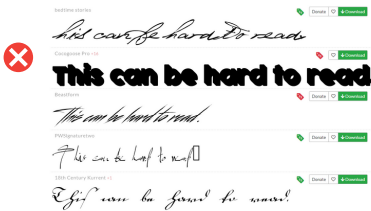 bedtime stories
Donate Download
this can be hard to read
Cocogoose Pro
Donate Download
This can be hard to read
Reactform
Donate Download
This can be hard to read.
PWSignaturetwo
Donate Download
This can be hard to read
18th Century Kurrent
Donate Download
This can be hard to read.